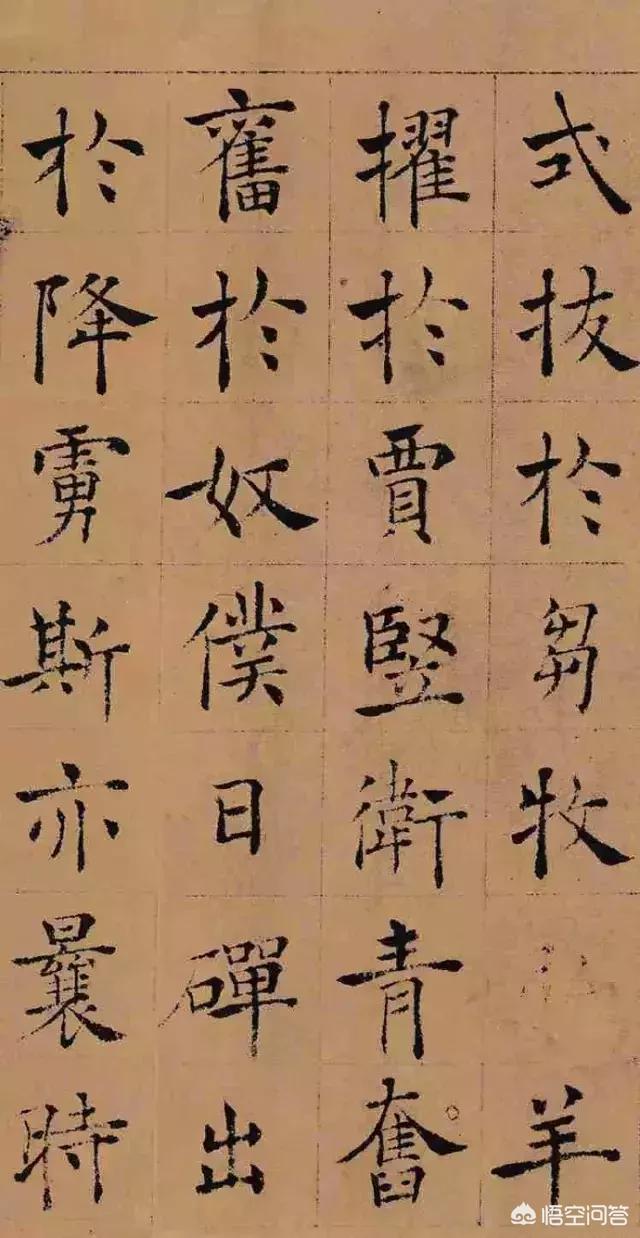 式拔於芻牧羊
擢於賈豎衛青奮
奮於奴僕日磾出
於降虜斯亦曩時
悟空问答